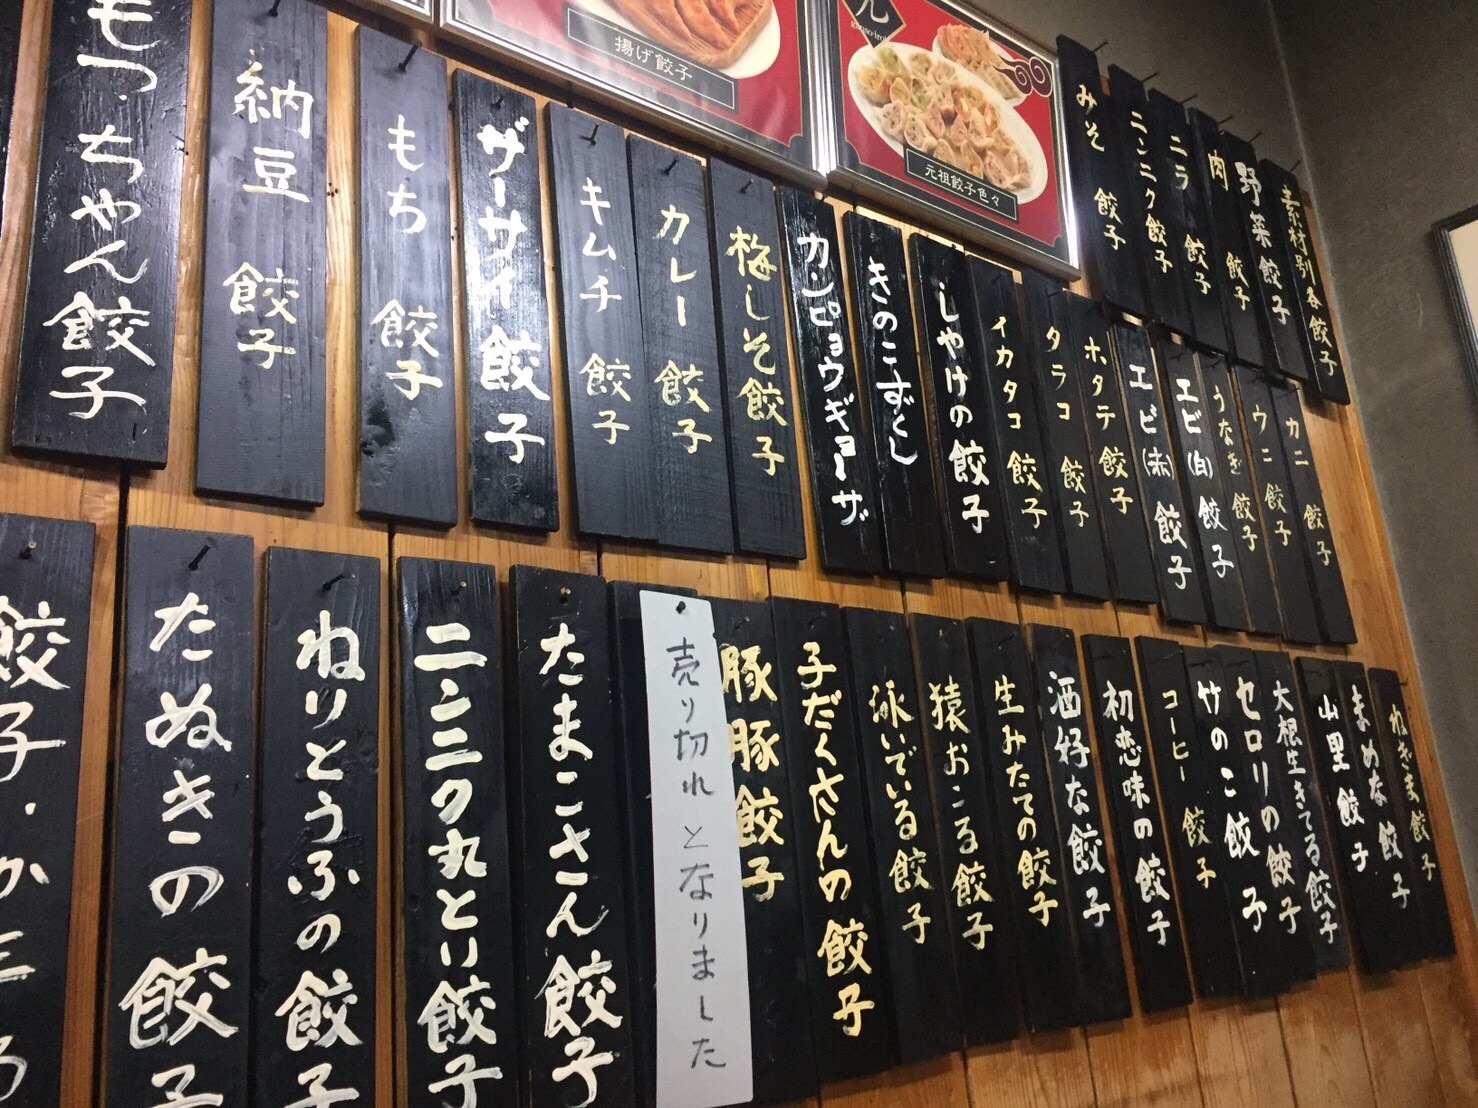 素材別各餃子
野菜餃子
肉餃子
ニラ餃子
ニンニク餃子
みそ餃子
元祖餃子色々
揚げ餃子
カニ餃子
ウニ餃子
うなぎ餃子
エビ(白)餃子
エビ(赤)餃子
ホタテ餃子
タラコ餃子
イカタコ餃子
しゃけの餃子
きのこずくし
カンピョウギョーザ
梅しそ餃子
カレー餃子
キムチ餃子
ザーサイ餃子
もち餃子
納豆餃子
もつ・ちゃん餃子
ねぎま餃子
まめな餃子
山里餃子
大根生きてる餃子
セロリの餃子
竹のこ餃子
コーヒー餃子
初恋味の餃子
酒好な餃子
生みたての餃子
猿おこる餃子
泳いでいる餃子
子だくさんの餃子
豚豚餃子
売り切れとなりました
たまごさん餃子
ニンニク丸とり餃子
ねりとうふの餃子
たぬきの餃子